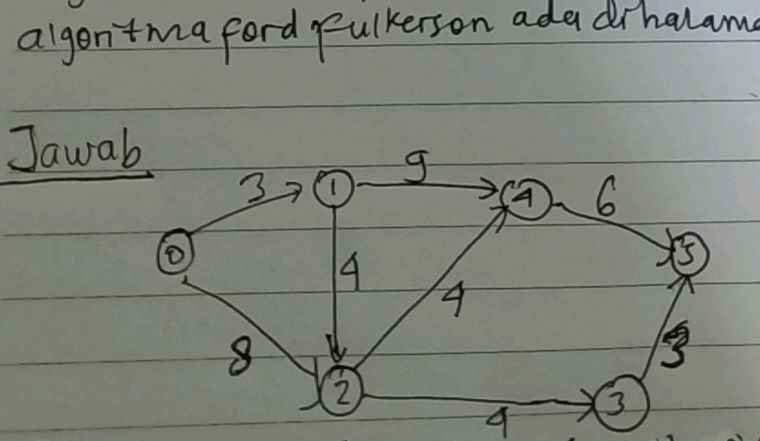 algoritma ford fulkerson ada di halama
Jawab
3
9
6
0
1
4
5
4
4
8
2
4
3